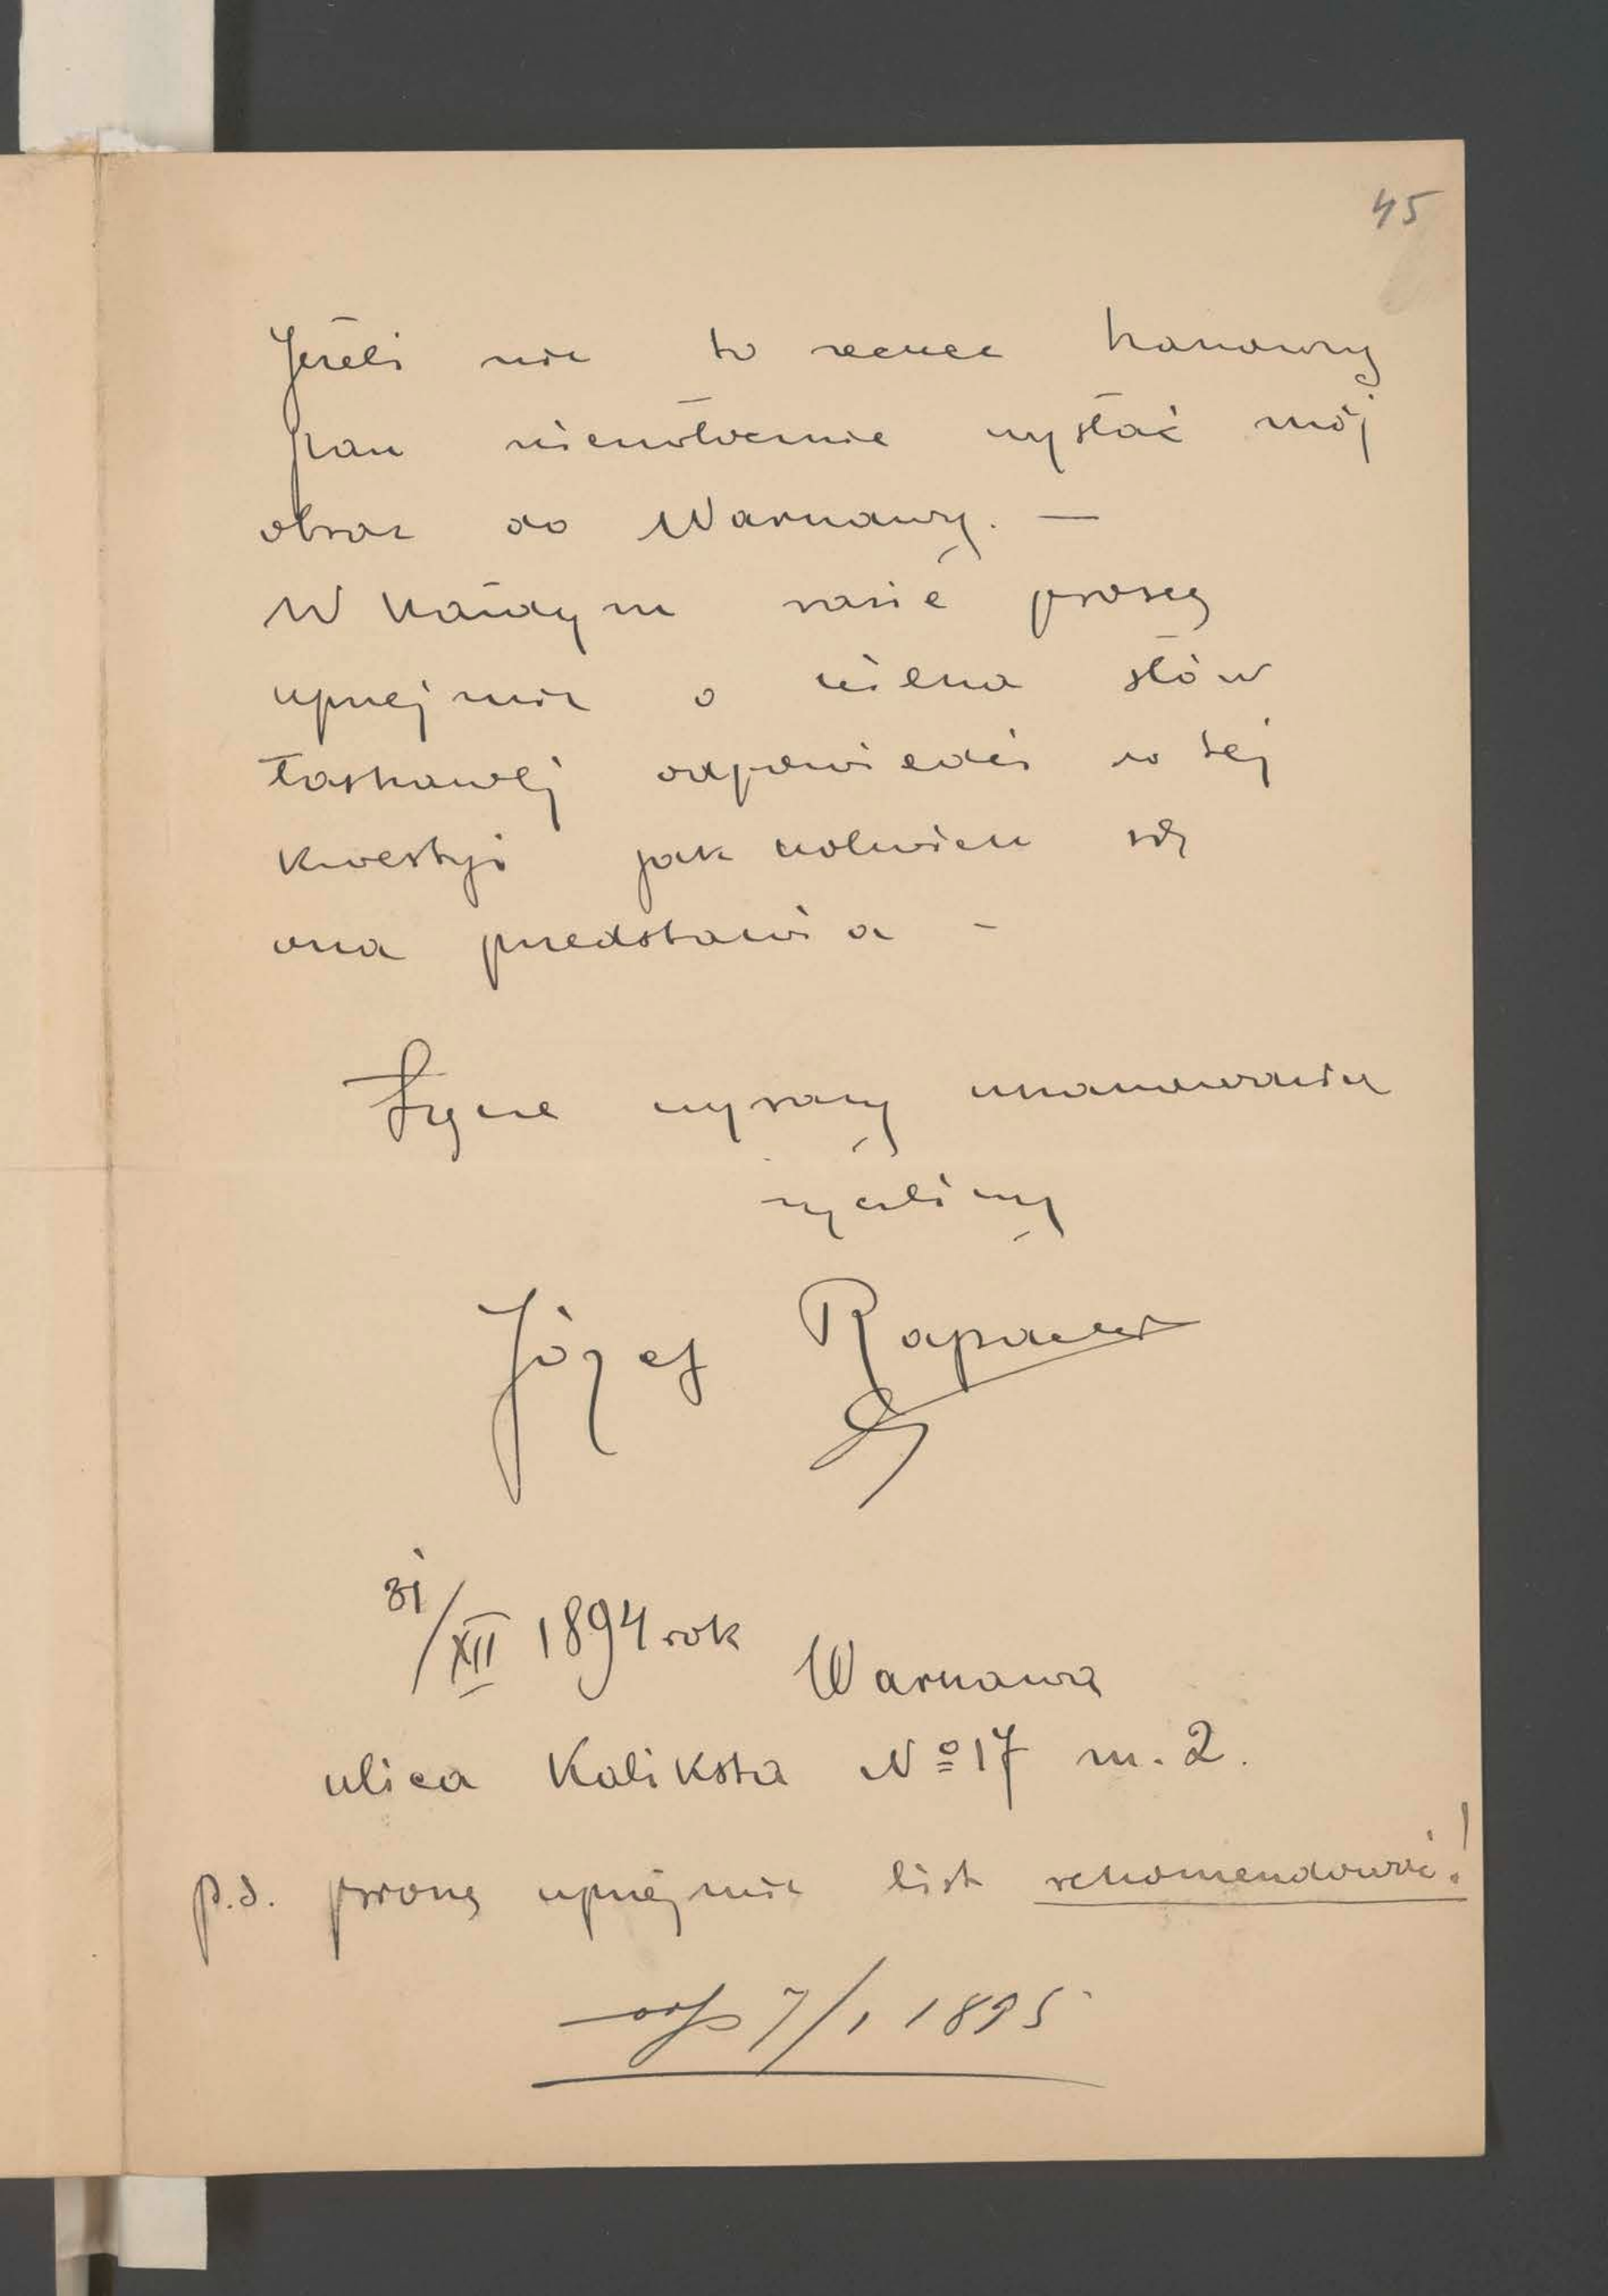 45
Jeżeli nie to zechce łaskawy
Pan niezwłocznie wysłać mój
obraz do Warszawy. —
W każdym razie proszę
uprzejmie o kilka słów
łaskawej odpowiedzi w tej
kwestyi jak kolwiek się
ona przedstawia –
Łączę wyrazy uszanowania
życzliwy
Józef Rapacki
31/XII 1894 rok Warszawa
ulica Kaliksta № 17 m. 2.
p.s. proszę uprzejmie list rekomendować!
odp 7/1 1895